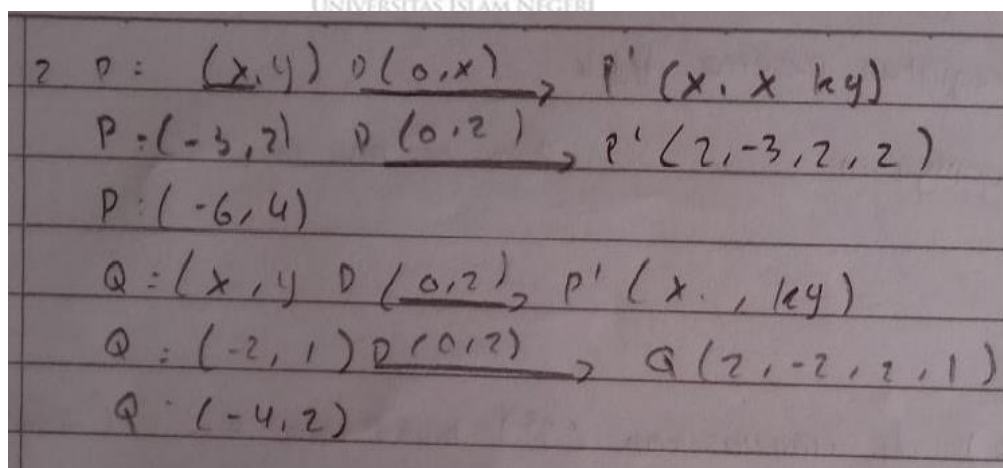 UNIVERSITAS ISLAM NEGERI
2 P : (x, y) D(0,x) → P' (x. x ky)
P = (-3, 2) D (0,2) → P' (2, -3, 2, 2)
P : (-6, 4)
Q = (x, y D (0,2) → P' (x. , ky)
Q : (-2, 1) D(0,2) → Q (2, -2, 2, 1)
Q : (-4, 2)